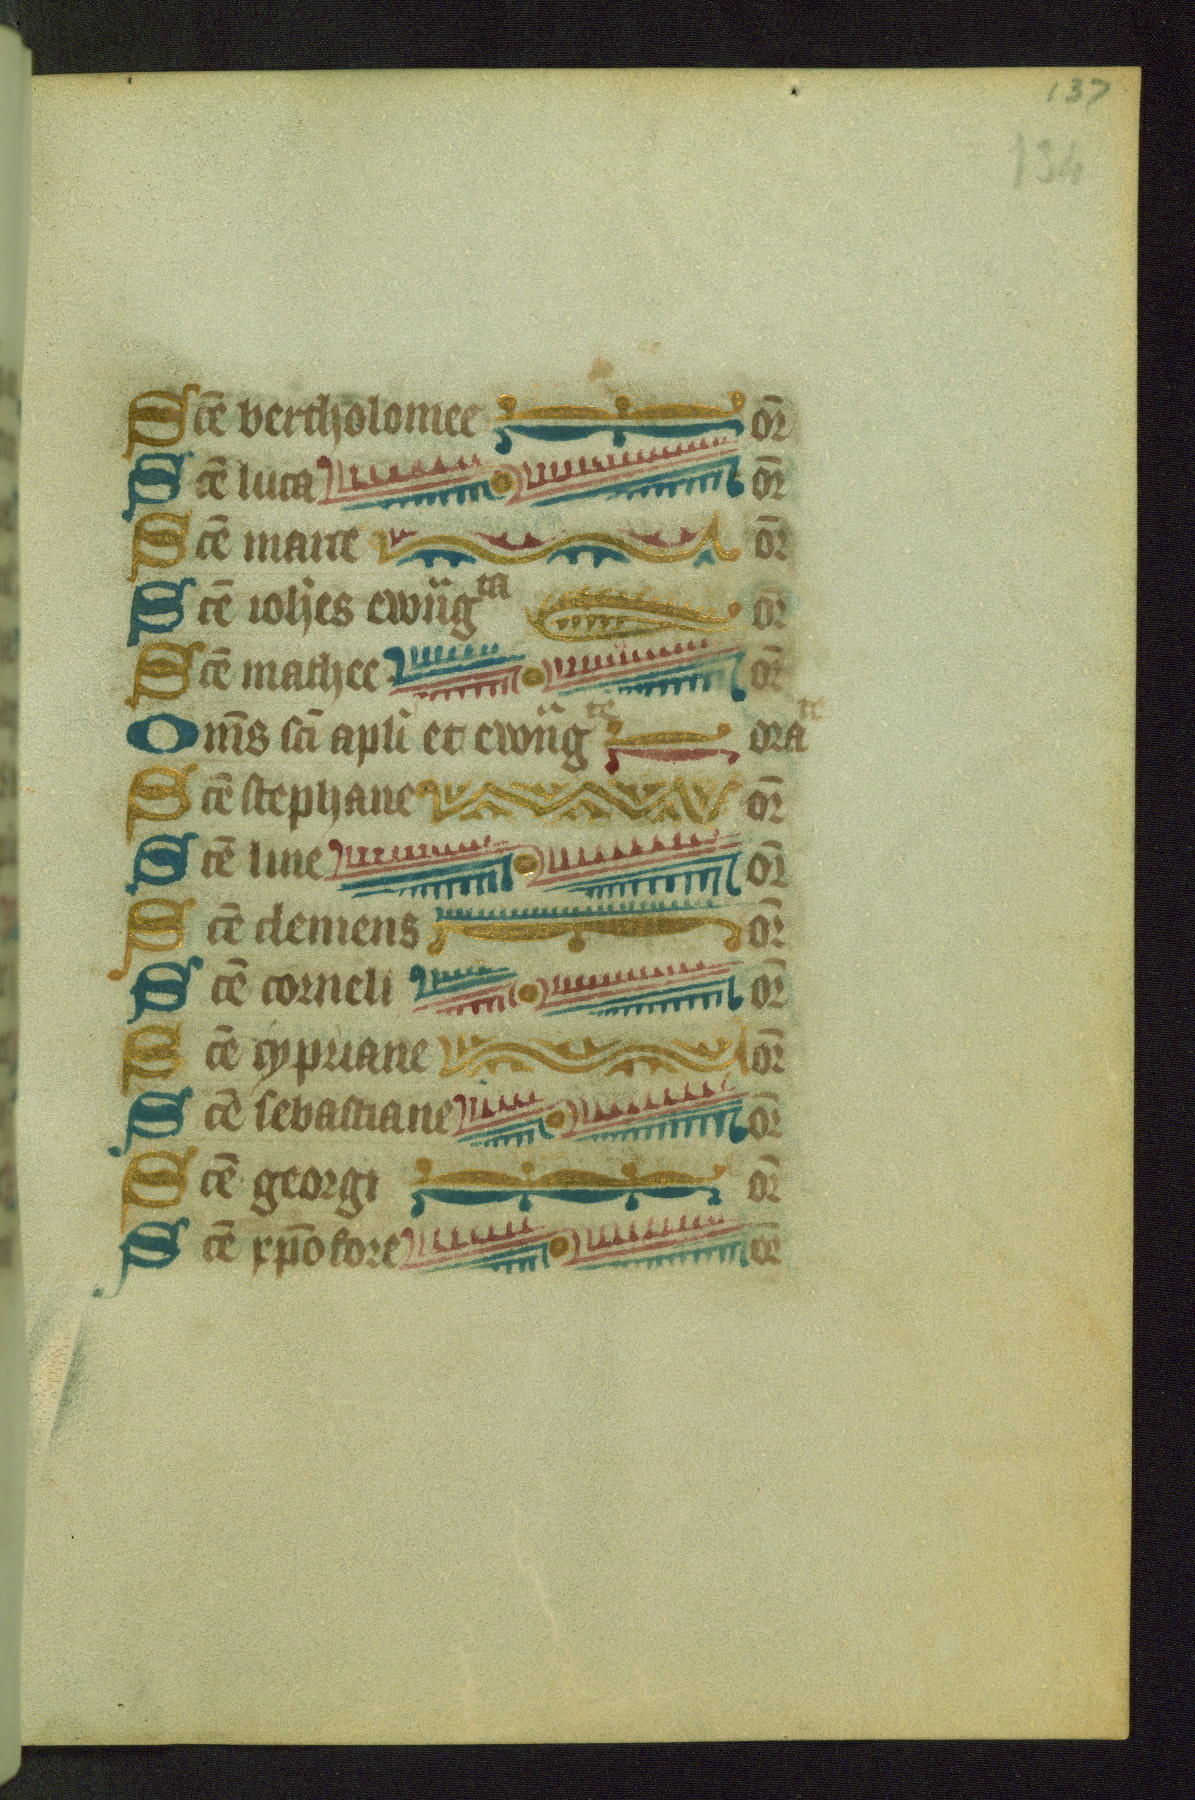 137
134
Scē bertholomee or̄
Scē luca or̄
Scē marce or̄
Scē ioh̄es ewn̄gta or̄
Scē mathee or̄
Om̄s sc̄i apl̄i et ewn̄gte orate
Scē stephane or̄
Scē line or̄
Scē clemens or̄
Scē corneli or̄
Scē cypriane or̄
Scē sebastiane or̄
Scē georgi or̄
Scē xp̄ofore or̄